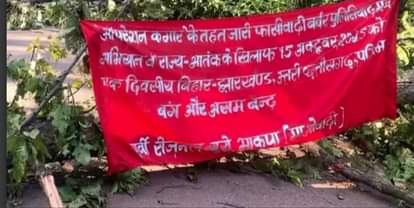 ऑपरेशन कगार के तहत जारी फासीवादी बर्बर
अभियान व राज्य-आतंक के खिलाफ 15 अक्टूबर, 2025 को
एक दिवसीय बिहार-झारखण्ड, उत्तरी छत्तीसगढ़, पश्चिम
बंग और असम बन्द
रीजनल ब्यूरो भाकपा (माओवादी)